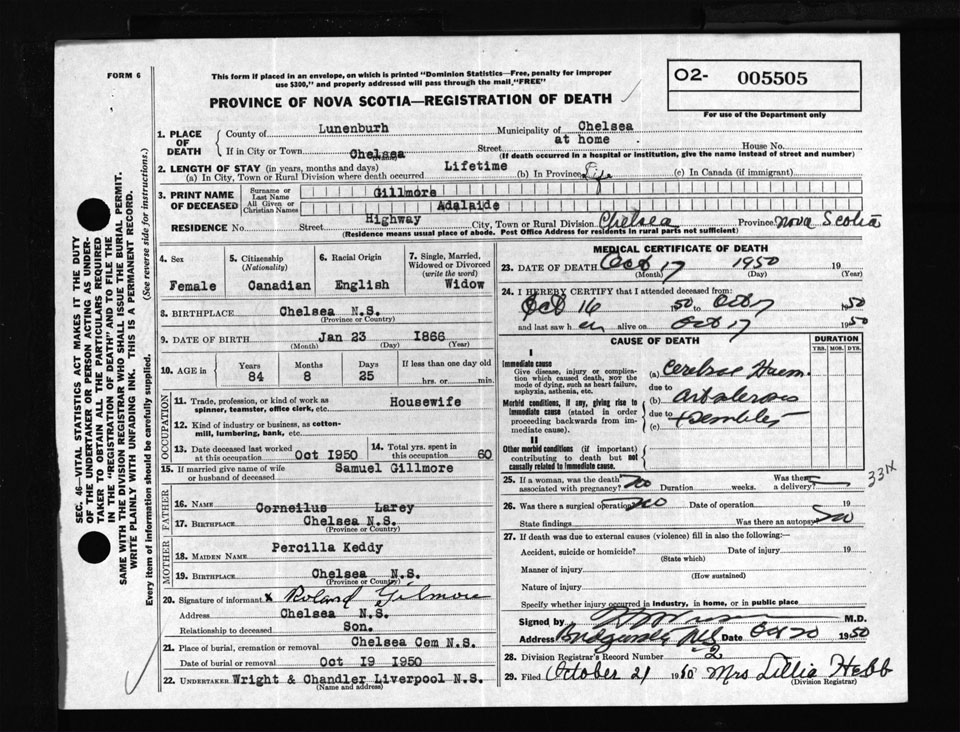 FORM 6
This form if placed in an envelope, on which is printed "Dominion Statistics—Free, penalty for improper
use $300," and properly addressed will pass through the mail, "FREE"
PROVINCE OF NOVA SCOTIA—REGISTRATION OF DEATH
O2- 005505
For use of the Department only
SEC. 46—VITAL STATISTICS ACT MAKES IT THE DUTY
OF THE UNDERTAKER OR PERSON ACTING AS UNDER-
TAKER TO OBTAIN ALL THE PARTICULARS REQUIRED
IN THE "REGISTRATION OF DEATH" AND TO FILE THE
SAME WITH THE DIVISION REGISTRAR WHO SHALL ISSUE THE BURIAL PERMIT.
WRITE PLAINLY WITH UNFADING INK. THIS IS A PERMANENT RECORD.
Every item of information should be carefully supplied. (See reverse side for instructions.)
1. PLACE OF DEATH
County of Lunenburh Municipality of Chelsea
If in City or Town Chelsea (Name) Street at home House No.
(If death occurred in a hospital or institution, give the name instead of street and number)
2. LENGTH OF STAY (in years, months and days)
(a) In City, Town or Rural Division where death occurred Lifetime (b) In Province Life (c) In Canada (if immigrant)
3. PRINT NAME OF DECEASED
Surname or Last Name Gillmore
All Given or Christian Names Adalaide
RESIDENCE No. Street Highway City, Town or Rural Division Chelsea Province Nova Scotia
(Residence means usual place of abode. Post Office Address for residents in rural parts not sufficient)
4. Sex Female
5. Citizenship (Nationality) Canadian
6. Racial Origin English
7. Single, Married, Widowed or Divorced (write the word) Widow
8. BIRTHPLACE Chelsea N.S.
(Province or Country)
9. DATE OF BIRTH Jan 23 1866
(Month) (Day) (Year)
10. AGE in Years 84 Months 8 Days 25 If less than one day old hrs. or min.
OCCUPATION
11. Trade, profession, or kind of work as spinner, teamster, office clerk, etc. Housewife
12. Kind of industry or business, as cotton-mill, lumbering, bank, etc.
13. Date deceased last worked at this occupation Oct 1950
14. Total yrs. spent in this occupation 60
15. If married give name of wife or husband of deceased Samuel Gillmore
FATHER
16. Name Corneilus Larey
17. Birthplace Chelsea N.S.
(Province or Country)
MOTHER
18. Maiden Name Percilla Keddy
19. Birthplace Chelsea N.S.
(Province or Country)
20. Signature of informant x Roland Gilmore
Address Chelsea N.S.
Relationship to deceased Son.
21. Place of burial, cremation or removal Chelsea Cem N.S.
Date of burial or removal Oct 19 1950
22. UNDERTAKER Wright & Chandler Liverpool N.S.
(Name and address)
MEDICAL CERTIFICATE OF DEATH
23. DATE OF DEATH Oct 17 1950 19
(Month) (Day) (Year)
24. I HEREBY CERTIFY that I attended deceased from:
Oct 16 1950 to Oct 17 1950
and last saw her alive on Oct 17 1950
CAUSE OF DEATH
DURATION
YRS. MOS. DYS.
I
Immediate cause
Give disease, injury or complication which caused death, NOT the mode of dying, such as heart failure, asphyxia, asthenia, etc.
(a) Cerebral Haem
due to
Morbid conditions, if any, giving rise to immediate cause (stated in order proceeding backwards from immediate cause).
(b)
due to
(c)
II
Other morbid conditions (if important) contributing to death but not causally related to immediate cause.
25. If a woman, was the death associated with pregnancy? no Duration weeks. Was there a delivery?
331X
26. Was there a surgical operation? no Date of operation 19
State findings Was there an autopsy? no
27. If death was due to external causes (violence) fill in also the following:—
Accident, suicide or homicide? Date of injury 19
(State which)
Manner of injury
(How sustained)
Nature of injury
Specify whether injury occurred in industry, in home, or in public place
Signed by M.D.
Address Bridgewater NS Date Oct 20 1950
28. Division Registrar's Record Number 2
29. Filed October 21 1950 Mrs Lillia Hebb
(Division Registrar)